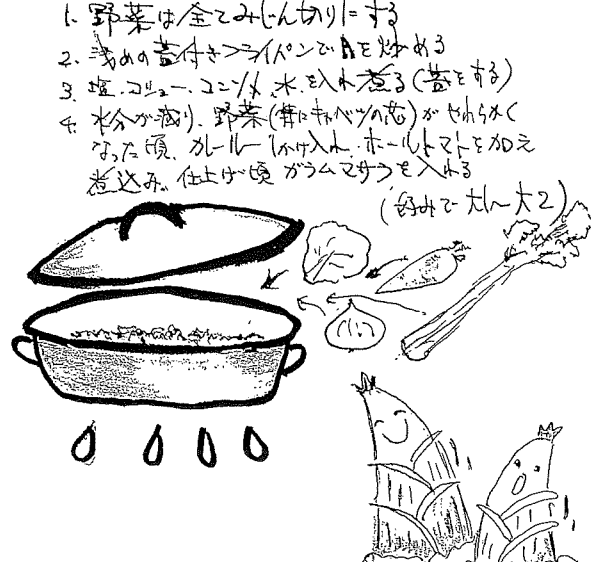 1. 野菜は全てみじん切りにする
2. 浅めの蓋付きフライパンでAを炒める
3. 塩、コショー、コンソメ、水、を入れ煮る(蓋をする)
4. 水分が減り、野菜(特にキャベツの芯)がやわらかく
なった頃、カレールー1かけ入れ、ホールトマトを加え
煮込み。仕上げ頃ガラムマサラを入れる
(好みで大1〜大2)